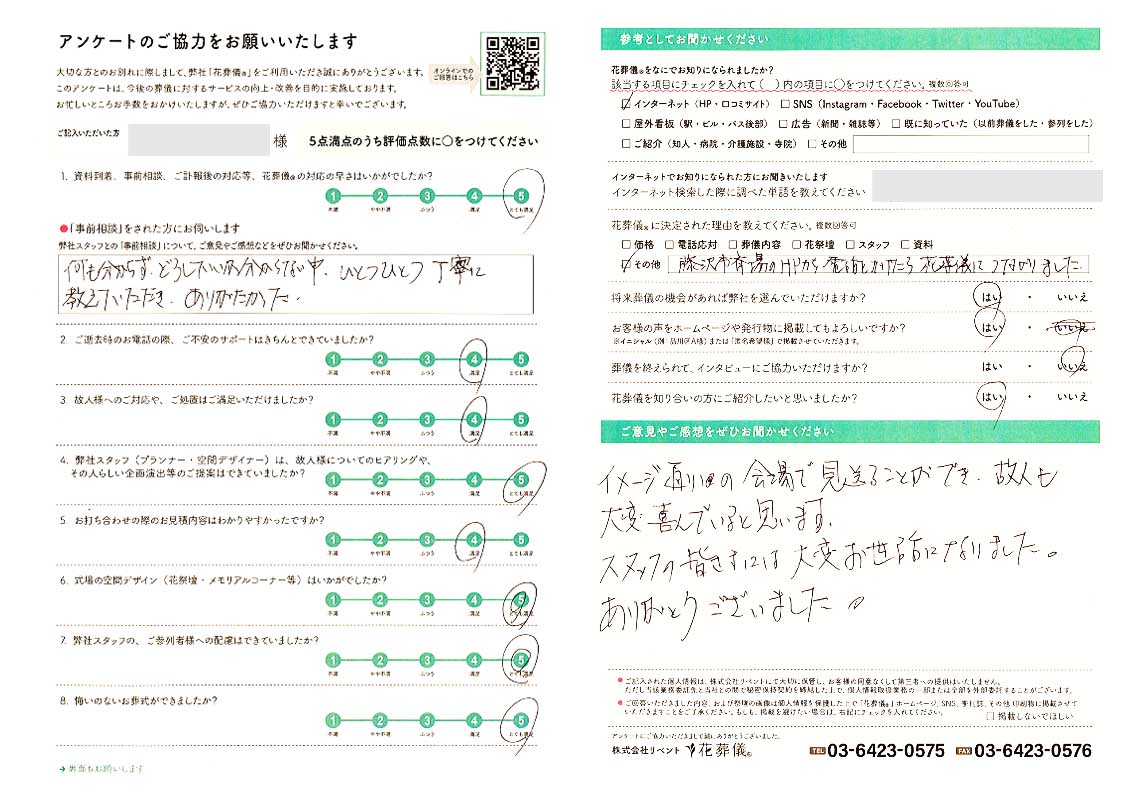 アンケートのご協力をお願いいたします
大切な方とのお別れに際しまして、弊社「花葬儀®」をご利用いただき誠にありがとうございます。
このアンケートは、今後の葬儀に対するサービスの向上・改善を目的に実施しております。
お忙しいところお手数をおかけいたしますが、ぜひご協力いただけますと幸いでございます。
オンラインでの
ご回答はこちら
ご記入いただいた方
様
5点満点のうち評価点数に○をつけてください
1. 資料到着、事前相談、ご訃報後の対応等、花葬儀®の対応の早さはいかがでしたか?
1 2 3 4 5
不満 やや不満 ふつう 満足 とても満足
●「事前相談」をされた方にお伺いします
弊社スタッフとの「事前相談」について、ご意見やご感想などをぜひお聞かせください。
何も分からず、どうしたらいいか分からない中、ひとつひとつ丁寧に
教えていただき、ありがたかった。
2. ご逝去時のお電話の際、ご不安のサポートはきちんとできていましたか?
1 2 3 4 5
不満 やや不満 ふつう 満足 とても満足
3. 故人様へのご対応や、ご処置はご満足いただけましたか?
1 2 3 4 5
不満 やや不満 ふつう 満足 とても満足
4. 弊社スタッフ(プランナー・空間デザイナー)は、故人様についてのヒアリングや、
その人らしい企画演出等のご提案はできていましたか?
1 2 3 4 5
不満 やや不満 ふつう 満足 とても満足
5. お打ち合わせの際のお見積内容はわかりやすかったですか?
1 2 3 4 5
不満 やや不満 ふつう 満足 とても満足
6. 式場の空間デザイン(花祭壇・メモリアルコーナー等)はいかがでしたか?
1 2 3 4 5
不満 やや不満 ふつう 満足 とても満足
7. 弊社スタッフの、ご参列者様への配慮はできていましたか?
1 2 3 4 5
不満 やや不満 ふつう 満足 とても満足
8. 悔いのないお葬式ができましたか?
1 2 3 4 5
不満 やや不満 ふつう 満足 とても満足
→ 裏面もお願いします
参考としてお聞かせください
花葬儀®をなにでお知りになられましたか?
該当する項目にチェックを入れて( )内の項目に○をつけてください。複数回答可
☑ インターネット(HP・口コミサイト) □ SNS(Instagram・Facebook・Twitter・YouTube)
□ 屋外看板(駅・ビル・バス後部) □ 広告(新聞・雑誌等) □ 既に知っていた(以前葬儀をした・参列をした)
□ ご紹介(知人・病院・介護施設・寺院) □ その他
インターネットでお知りになられた方にお聞きいたします
インターネット検索した際に調べた単語を教えてください
花葬儀®に決定された理由を教えてください。複数回答可
□ 価格 □ 電話応対 □ 葬儀内容 □ 花祭壇 □ スタッフ □ 資料
☑ その他 藤沢市斎場のHPから電話をかけたら花葬儀につながりました。
将来葬儀の機会があれば弊社を選んでいただけますか? はい ・ いいえ
お客様の声をホームページや発行物に掲載してもよろしいですか? はい ・ いいえ
※イニシャル(例:品川区A様)または「匿名希望様」で掲載させていただきます。
葬儀を終えられて、インタビューにご協力いただけますか? はい ・ いいえ
花葬儀を知り合いの方にご紹介したいと思いましたか? はい ・ いいえ
ご意見やご感想をぜひお聞かせください
イメージ通りの会場で見送ることができ、故人も
大変喜んでいると思います。
スタッフの皆さまには大変お世話になりました。
ありがとうございました。
●ご記入された個人情報は、株式会社リベントにて大切に保管し、お客様の同意なくして第三者への提供はいたしません。
ただし当該業務委託先と当社との間で秘密保持契約を締結した上で、個人情報取扱業務の一部または全部を外部委託することがございます。
●ご回答いただきました内容、および祭壇の画像は個人情報を保護した上で「花葬儀®」ホームページ、SNS、季刊誌、その他印刷物に掲載させて
いただきますことをご了承ください。もしも、掲載を避けたい場合は、右記にチェックを入れてください。
□ 掲載しないでほしい
アンケートにご協力いただきまして誠にありがとうございました。
株式会社リベント 花葬儀® TEL 03-6423-0575 FAX 03-6423-0576